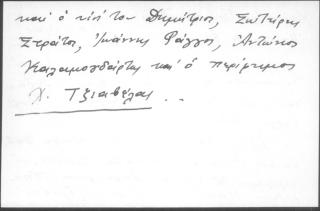 καὶ ὁ υἱός του Δημήτριος, Σωτήρης
Στράτος, Ἰωάννης Φάγγος, Ἀντώνιος
Καλαμογδάρτης καὶ ὁ περίφημος
Χ. Τζιαβέλας ..